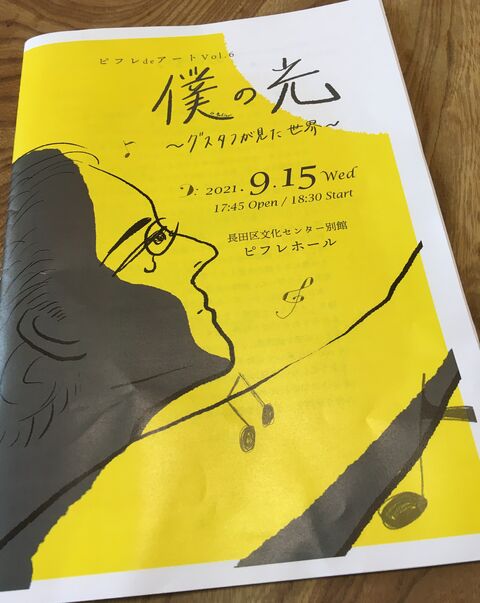 ピフレdeアートVol.6
僕の光
〜グスタフが見た世界〜
2021.9.15 Wed
17:45 Open / 18:30 Start
長田区文化センター別館
ピフレホール